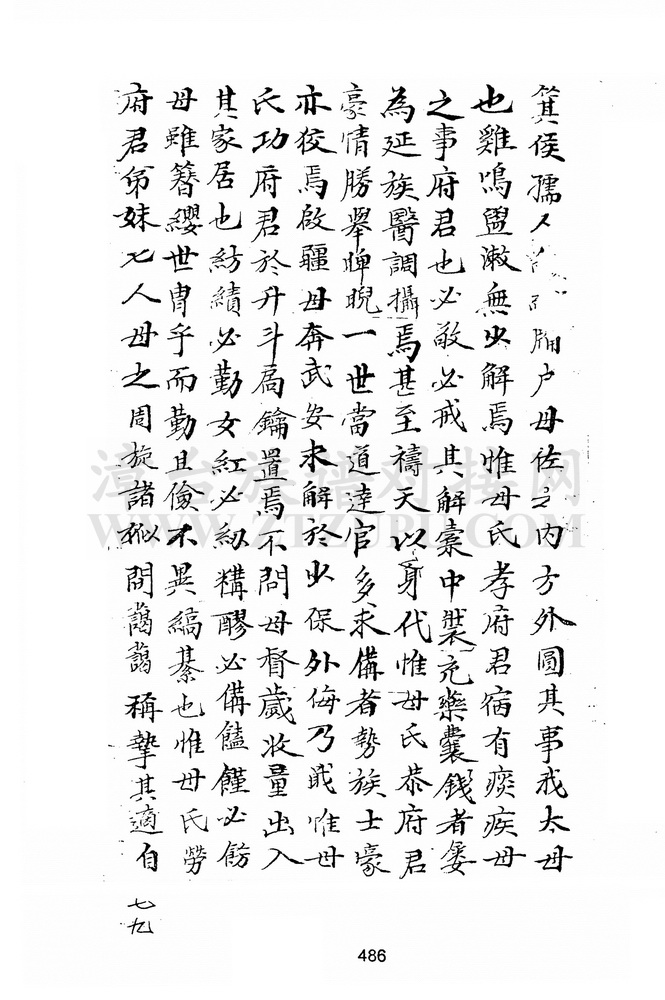 箕侯孺人戶母佐之內方外圓其事我太母
也雞鳴盥漱無少解焉惟母氏孝府君宿有痰疾母
之事府君也必敬必戒其解橐中裝充藥囊錢者屡
為延族醫調攝焉甚至禱天以身代惟母氏恭府君
豪情勝舉睥睨一世當道達官多求備者勢族士豪
亦狡焉啟疆母奔武安求解於少保外侮乃戢惟母
氏功府君於升斗扃鑰置焉不問母督歲收量出入
其家居也紡績必勤女紅必紉精醪必備饁饉必飭
母雖簪纓世冑乎而勤且儉不異縞綦也惟母氏勞
府君弟妹七人母之周旋諸姒間藹藹稱摯其適自
七九
486
漳台族谱对接网
WWW.ZTZUPU.COM